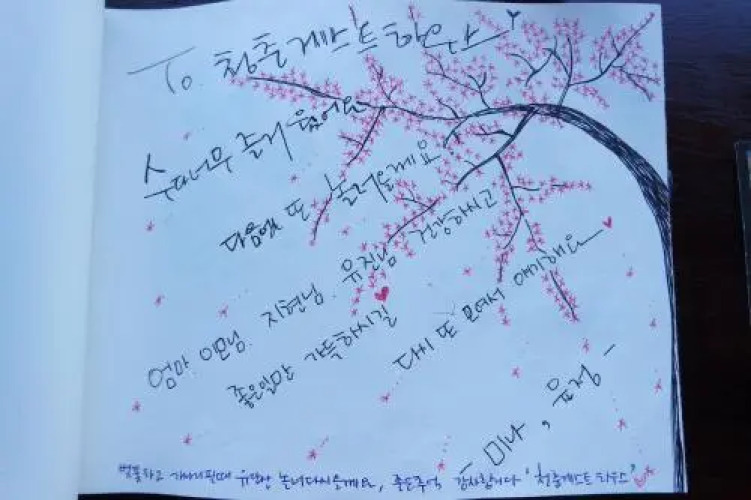 To. 청춘게스트하우스
너무 즐거웠어요
다음에 또 놀러올게요
엄마, 이모님, 지현님, 유진님 건강하시고
좋은일만 가득하시길
다시 또 모여서 얘기해요
- 미나, 유정 -
놀러다시올게요, 좋은추억 감사합니다 '청춘게스트하우스'